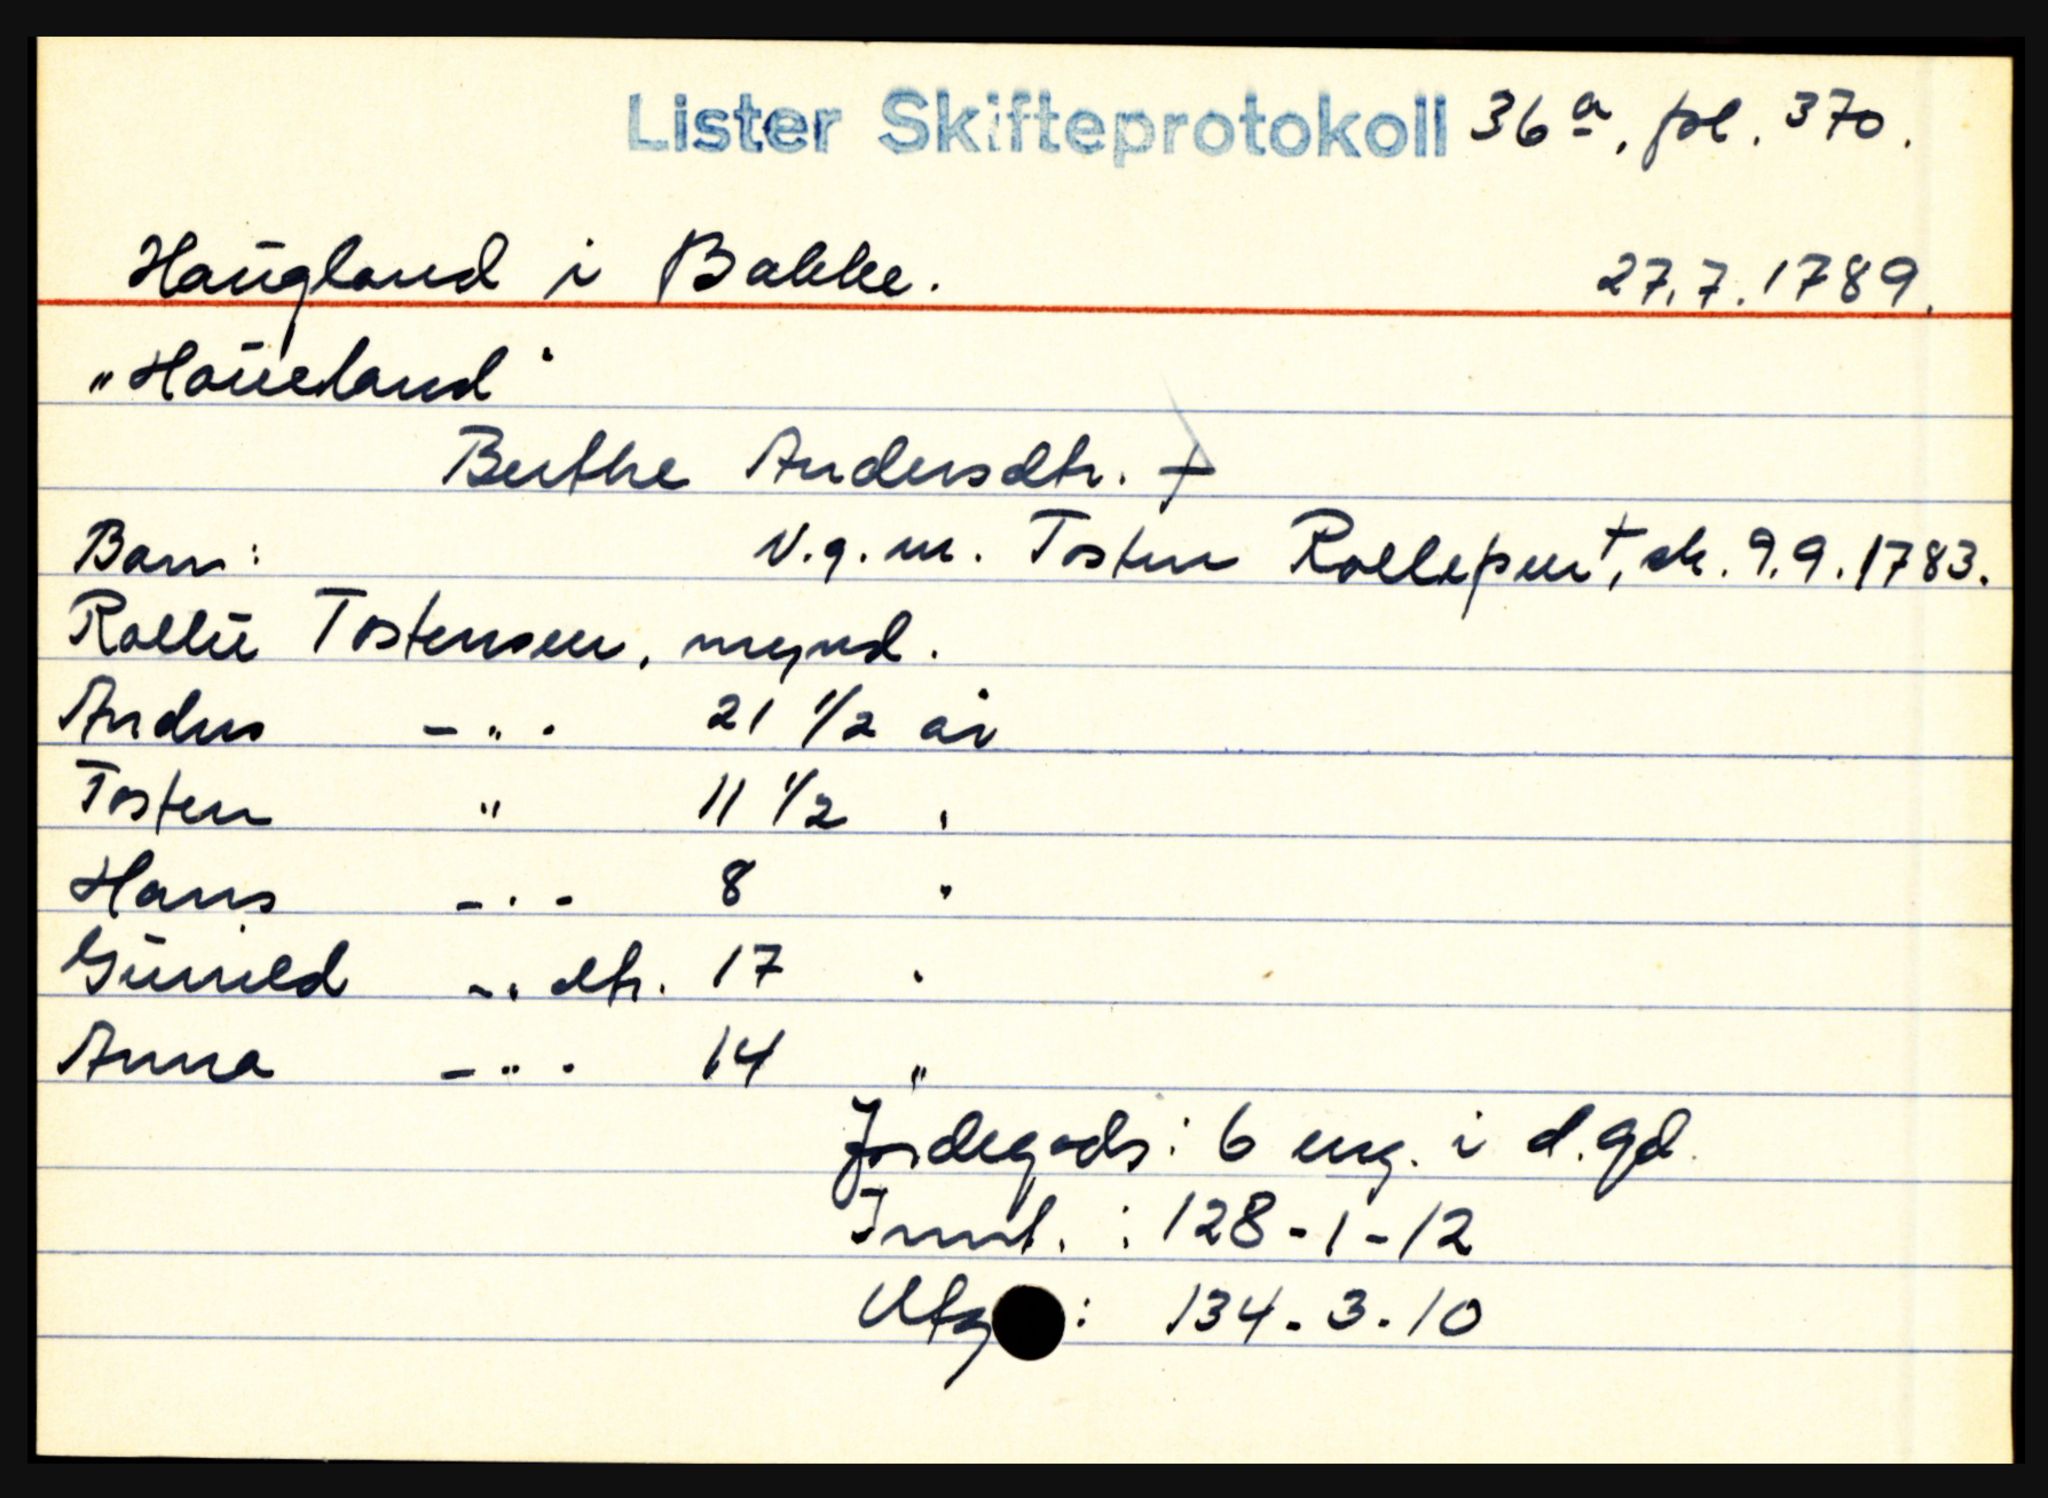 Lister Skifteprotokoll 36a, fol. 370.
Haugland i Bakke. 27.7.1789.
"Houeland"
Berthe Andersdtr. +
Barn: V.g.m. Tosten Rollefsen +, sk. 9.9.1783.
Rollu Tostensen, mynd.
Anders - " - 21 1/2 år
Tosten " 11 1/2 "
Hans - " - 8 "
Gunild - " dtr. 17 "
Anna - " - 14 "
Jordegods: 6 eng. i d. gd.
Innt. : 128-1-12
Utg : 134-3-10